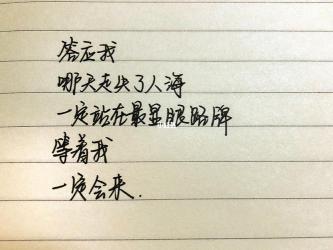 答应我
哪天走失了人海
一定站在最显眼路牌
等着我
一定会来.